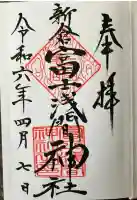 奉拝
新倉
富士浅間神社
令和六年四月七日